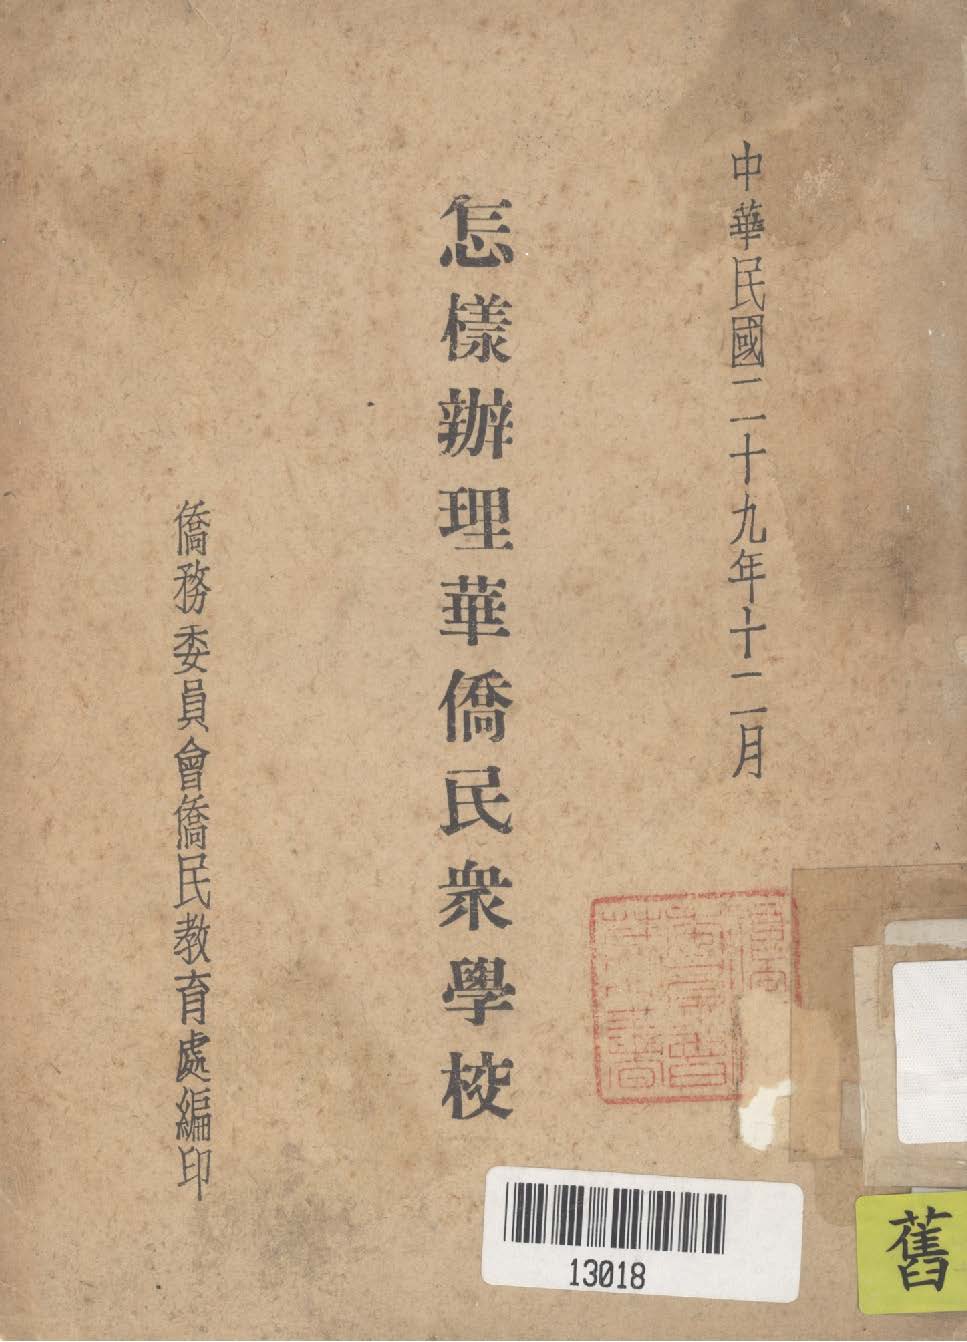 中華民國二十九年十二月
怎樣辦理華僑民眾學校
僑務委員會僑民教育處編印
13018
舊